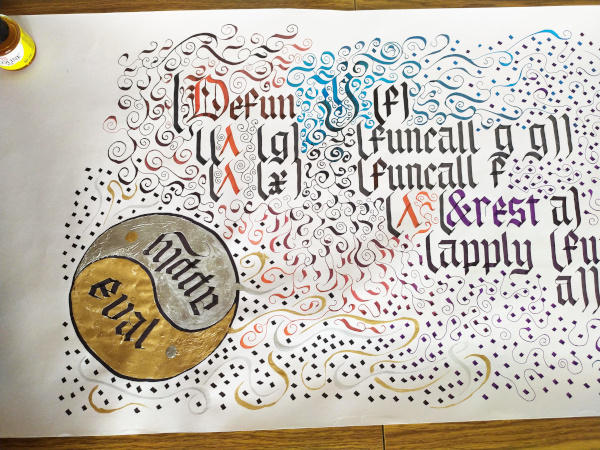 (Defun Y (f)
((λ (g) (funcall g g))
(λ (x) (funcall f
(λ (&rest a)
(apply (fu
a))
apply
eval